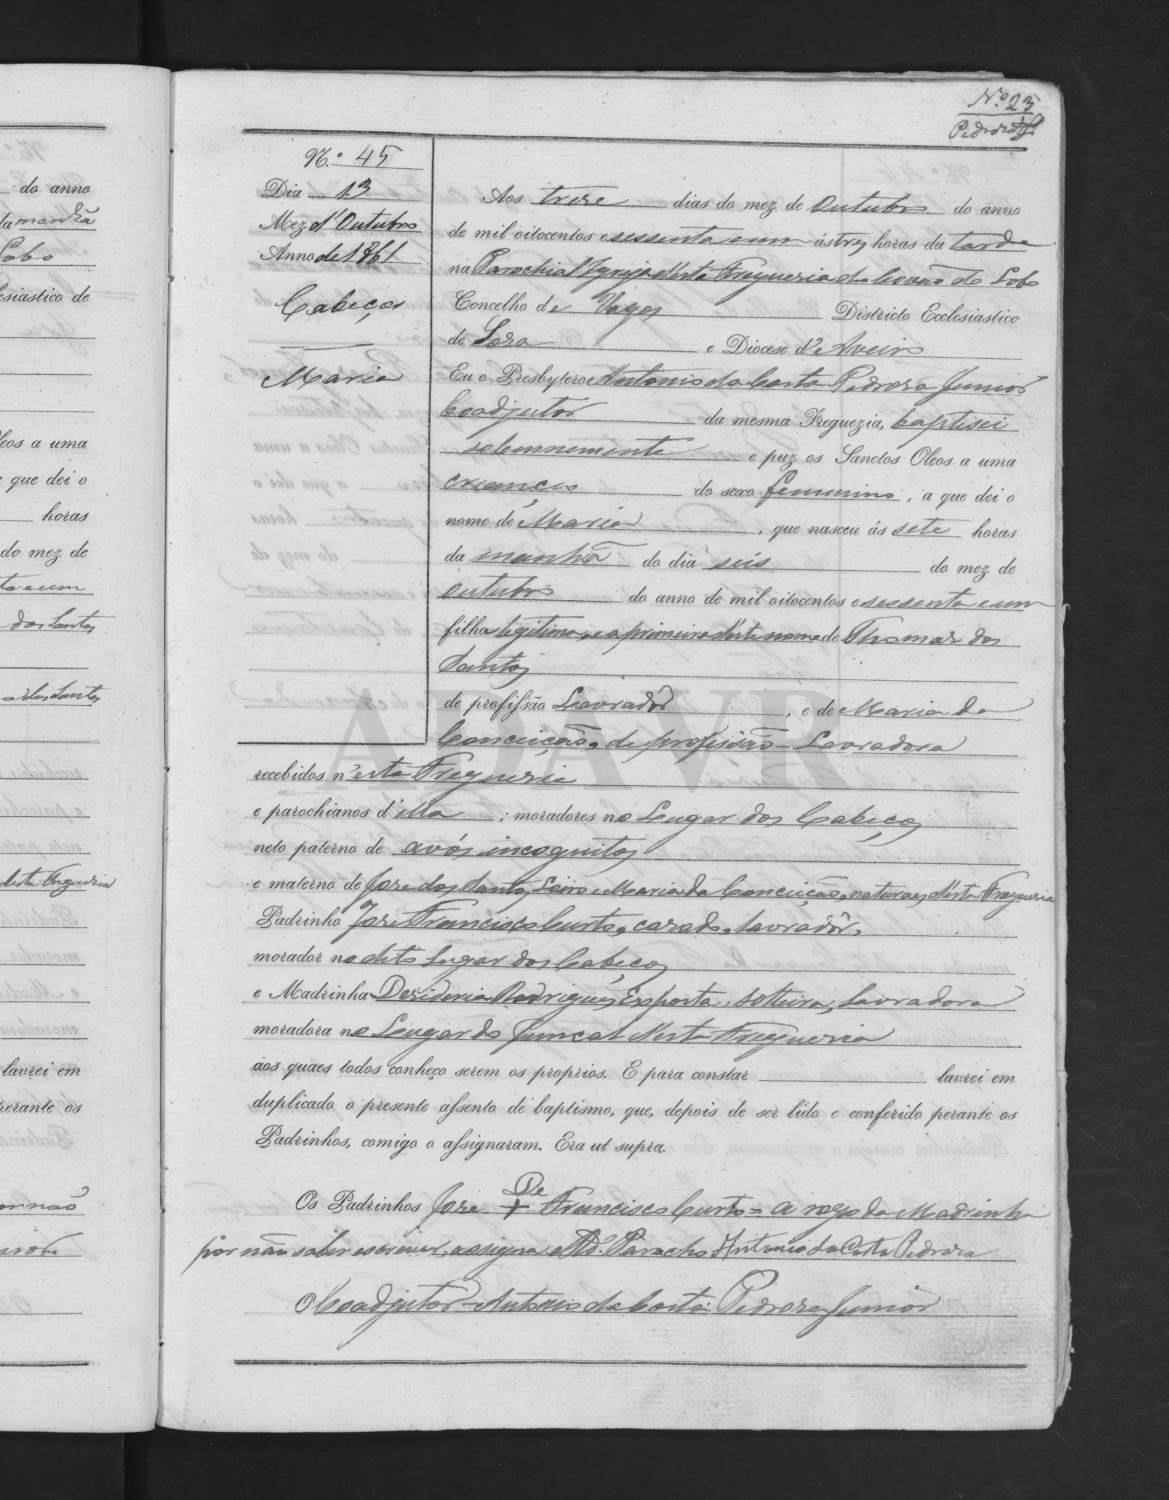 Nº 23
Pedroza
N.º 45
Dia 13
Mez d'Outubro
Anno de 1861
Cabeços
Maria
Aos treze dias do mez de Outubro do anno
de mil oitocentos e sessenta e um ás trez horas da tarde
na Parochial Igreja d'esta Freguezia do Covão do Lobo
Concelho de Vagos Districto Ecclesiastico
de Soza e Diocese d'e Aveiro
Eu o Presbytero Antonio da Costa Pedroza Junior
Coadjutor da mesma Freguezia, baptisei
solemnemente e puz os Sanctos Oleos a uma
criança do sexo femenino, a que dei o
nome de Maria, que nasceu ás sete horas
da manhã do dia seis do mez de
Outubro do anno de mil oitocentos e sessenta e um
filha legitima, e a primeira d'este nome de Thomaz dos
Santos
de profissão Lavradôr, e de Maria da
Conceição, de profissão - Lavradora
recebidos n'esta Freguezia
e parochianos d'ella; moradores no Lugar dos Cabeços
neto paterno de avós incognitos
e materno de Joze dos Santos e Maria da Conceição, naturaes d'esta Freguezia
Padrinho Joze Francisco Curto, cazado, lavradôr,
morador no dito Lugar dos Cabeços
e Madrinha Desideria Rodrigues, Exposta, solteira, lavradora
moradora no Lugar do Juncal d'esta Freguezia
aos quaes todos conheço serem os proprios. E para constar lavrei em
duplicado o presente assento de baptismo, que, depois de ser lido e conferido perante os
Padrinhos, comigo o assignaram. Era ut supra.
De
Os Padrinhos Joze + Francisco Curto = a rogo da Madrinha
por não saber escrever, assigna o Rd.º Parocho Antonio da Costa Pedroza
O Coadjutor - Antonio da Costa Pedroza Junior
ADAVR
do anno
da manhã
Lobo
esiastico de
leos a uma
que dei o
horas
do mez de
ta e um
dos Santos
dos Santos
desta Freguezia
lavrei em
perante os